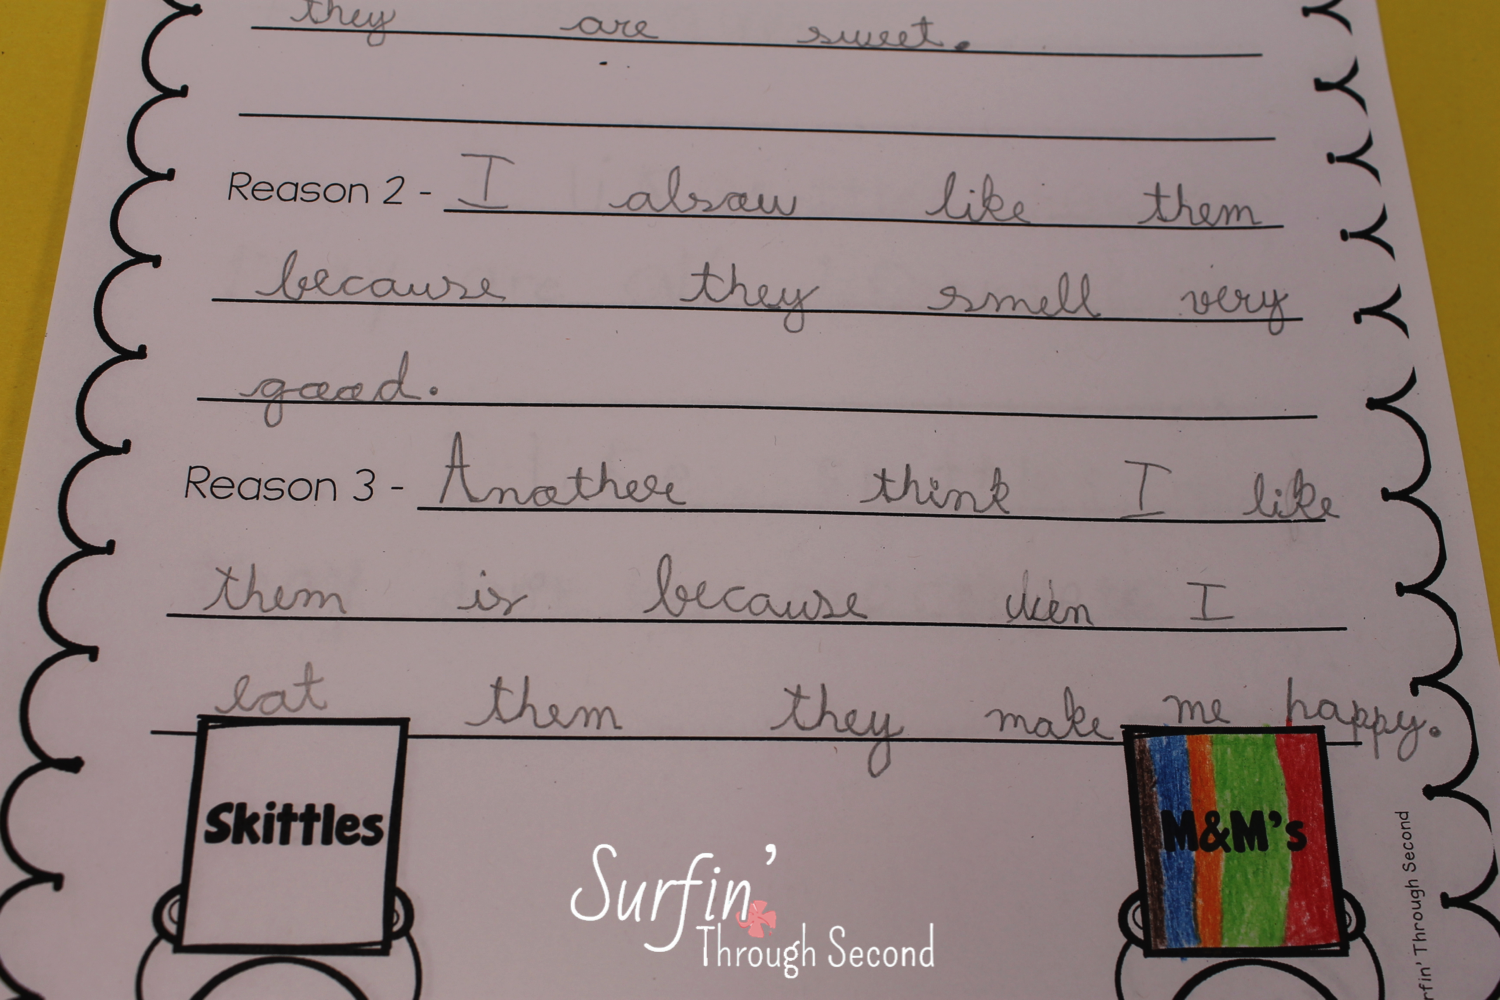 they are sweet.
Reason 2 - I alsow like them
because they smell very
good.
Reason 3 - Another think I like
them is because wen I
eat them they make me happy.
Skittles
M&M's
Surfin'
Through Second
rfin' Through Second